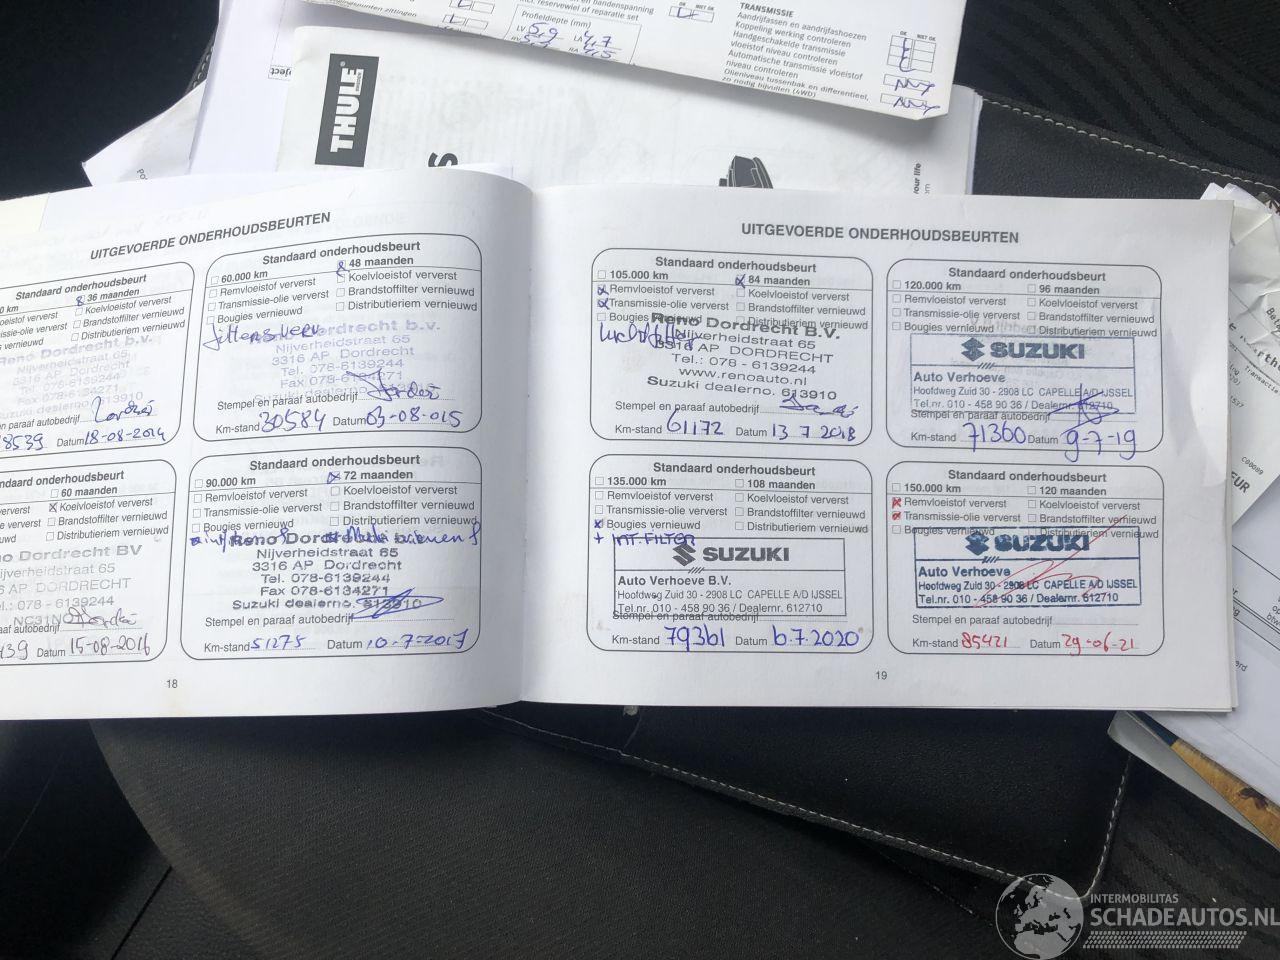 en bandenspanning
incl. reservewiel of reparatie set
Profieldiepte (mm)
LV 5,9 LA 4,7
RA 4,5
OK NIET OK
TRANSMISSIE
Aandrijfassen en aandrijfashoezen
Koppeling werking controleren
Handgeschakelde transmissie
vloeistof niveau controleren
Automatische transmissie vloeistof
niveau controleren
Olieniveau tussenbak en differentieel,
zo nodig bijvullen (4WD)
OK NIET OK
THULE
UITGEVOERDE ONDERHOUDSBEURTEN
Standaard onderhoudsbeurt
36 maanden
Koelvloeistof ververst
Brandstoffilter vernieuwd
Distributieriem vernieuwd
Reno Dordrecht b.v.
Nijverheidstraat 65
3316 AP Dordrecht
Tel. 078-6139244
Suzuki dealerno. 613910
en paraaf autobedrijf
8539 Datum 18-08-2014
Standaard onderhoudsbeurt
60.000 km 48 maanden
Remvloeistof ververst Koelvloeistof ververst
Transmissie-olie ververst Brandstoffilter vernieuwd
Bougies vernieuwd Distributieriem vernieuwd
Dordrecht b.v.
Nijverheidstraat 65
3316 AP Dordrecht
Tel. 078-6139244
Suzuki dealerno. 613910
Stempel en paraaf autobedrijf
Km-stand 30584 Datum 03-08-015
60 maanden
Koelvloeistof ververst
Brandstoffilter vernieuwd
Distributieriem vernieuwd
Reno Dordrecht BV
Nijverheidstraat 65
3316 AP DORDRECHT
Tel.: 078 - 6139244
autobedrijf
Datum 15-08-2016
Standaard onderhoudsbeurt
90.000 km 72 maanden
Remvloeistof ververst Koelvloeistof ververst
Transmissie-olie ververst Brandstoffilter vernieuwd
Bougies vernieuwd Distributieriem vernieuwd
Reno Dordrecht b.v.
Nijverheidstraat 65
3316 AP Dordrecht
Tel. 078-6139244
Fax 078-6134271
Suzuki dealerno. 613910
Stempel en paraaf autobedrijf
Km-stand 51275 Datum 10-7-2017
18
UITGEVOERDE ONDERHOUDSBEURTEN
Standaard onderhoudsbeurt
105.000 km 84 maanden
Remvloeistof ververst Koelvloeistof ververst
Transmissie-olie ververst Brandstoffilter vernieuwd
Bougies vernieuwd Distributieriem vernieuwd
Luchtfilter
Reno Dordrecht B.V.
Nijverheidstraat 65
3316 AP DORDRECHT
Tel.: 078 - 6139244
www.renoauto.nl
Suzuki dealerno. 613910
Stempel en paraaf autobedrijf
Km-stand 61172 Datum 13 7 2018
Standaard onderhoudsbeurt
120.000 km 96 maanden
Remvloeistof ververst Koelvloeistof ververst
Transmissie-olie ververst Brandstoffilter vernieuwd
Bougies vernieuwd Distributieriem vernieuwd
SUZUKI
Auto Verhoeve
Hoofdweg Zuid 30 - 2908 LC CAPELLE A/D IJSSEL
Tel.nr. 010 - 458 90 36 / Dealernr. 612710
Stempel en paraaf autobedrijf
Km-stand 71360 Datum 9-7-19
Standaard onderhoudsbeurt
135.000 km 108 maanden
Remvloeistof ververst Koelvloeistof ververst
Transmissie-olie ververst Brandstoffilter vernieuwd
Bougies vernieuwd Distributieriem vernieuwd
+ INT. FILTER
SUZUKI
Auto Verhoeve B.V.
Hoofdweg Zuid 30 - 2908 LC CAPELLE A/D IJSSEL
Tel.nr. 010 - 458 90 36 / Dealernr. 612710
Stempel en paraaf autobedrijf
Km-stand 79361 Datum 6.7.2020
Standaard onderhoudsbeurt
150.000 km 120 maanden
Remvloeistof ververst Koelvloeistof ververst
Transmissie-olie ververst Brandstoffilter vernieuwd
Bougies vernieuwd Distributieriem vernieuwd
SUZUKI
Auto Verhoeve
Hoofdweg Zuid 30 - 2908 LC CAPELLE A/D IJSSEL
Tel.nr. 010 - 458 90 36 / Dealernr. 612710
Km-stand 85421 Datum 29-06-21
19
EUR
INTERMOBILITAS
SCHADEAUTOS.NL